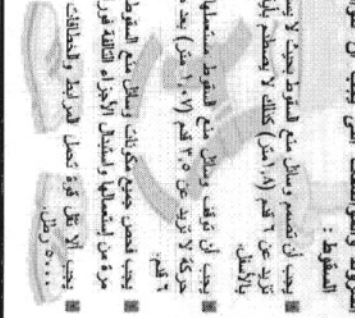 السقوط :
■ يجب أن تصمم وسائل منع السقوط بحيث لا
تزيد عن ٦ قدم (١,٨متر) كذلك لا يصطدم
بالأسفل.
■ يجب أن توقف وسائل منع السقوط مستعملها
حركة لا تزيد عن ٣,٥ قدم (١,٠٧ متر) بعد
٦ قدم.
■ يجب فحص جميع مكونات وسائل منع السقوط
مرة من إستعمالها وإستبدال الأجزاء التالفة
■ يجب ألا تقل قوة تحمل المرابط والخطافات
٥٠٠٠ رطل.